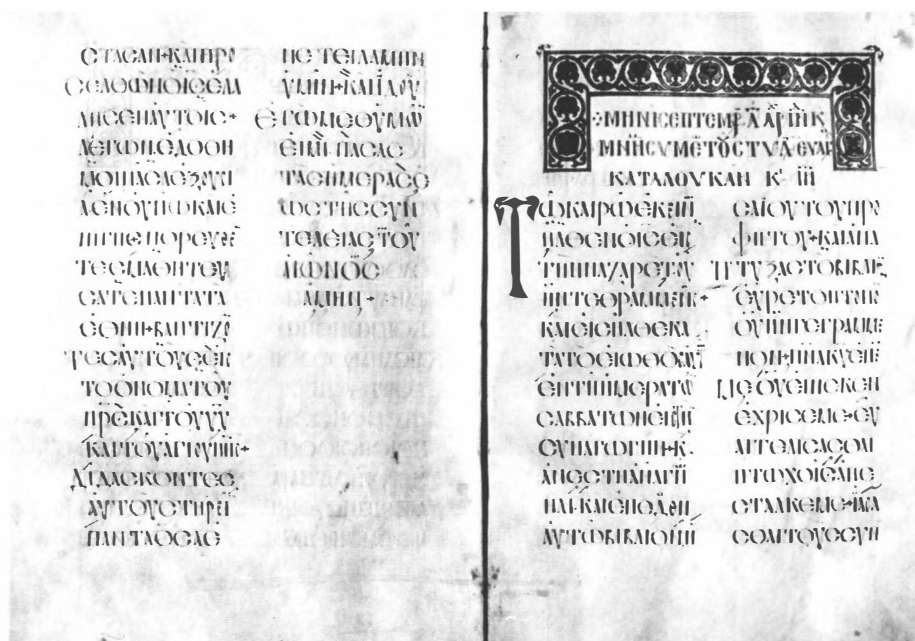 ϹΤΑϹΑΝ+ΚΑΙΠΡΟ
ϹΕΛΘΩΝΟΙϹΕΛΑ
ΛΗϹΕΝΑΥΤΟΙϹ+
ΛΕΓΩΝΕΔΟΘΗ
ΜΟΙΠΑϹΑΕΞΟΥϹΙ
ΑΕΝΟΥΝΩΚΑΙΕ
ΠΙΓΗϹ+ΠΟΡΕΥΘΕ
ΤΕϹΜΑΘΗΤΕΥ
ϹΑΤΕΠΑΝΤΑΤΑ
ΕΘΝΗ+ΒΑΠΤΙΖΟ
ΤΕϹΑΥΤΟΥϹΕΙϹ
ΤΟΟΝΟΜΑΤΟΥ
ΠΡϹΚΑΙΤΟΥΥΥ
ΚΑΙΤΟΥΑΓΙΟΥΠΝϹ+
ΔΙΔΑϹΚΟΝΤΕϹ
ΑΥΤΟΥϹΤΗΡΕΙ
ΠΑΝΤΑΟϹΑΕ
ΝΕΤΕΙΛΑΜΗΝ
ΥΜΙΝ+ΚΑΙΙΔΟΥ
ΕΓΩΜΕΘΥΜΩ
ΕΙΜΙΠΑϹΑϹ
ΤΑϹΗΜΕΡΑϹΕ
ΩϹΤΗϹϹΥΝ
ΤΕΛΕΙΑϹΤΟΥ
ΑΙΩΝΟϹ
ΑΜΗΝ+
ΜΗΝΙϹΕΠΤΕΜΡ
ΚΑΤΑΛΟΥΚΑΝ
ΤΩΚΑΙΡΩΕΚΕΙΝ
ΗΛΘΕΝΟΙϹΕΙϹ
ΤΗΝΝΑΖΑΡΕΤΟΥ
ΗΝΤΕΘΡΑΜΜΕΝ+
ΚΑΙΕΙϹΗΛΘΕΚΑ
ΤΑΤΟΕΙΩΘΟϹΑΥ
ΕΝΤΗΗΜΕΡΑΤΩ
ϹΑΒΒΑΤΩΝΕΙϹΤΗ
ϹΥΝΑΓΩΓΗΝ+Κ
ΑΝΕϹΤΗΑΝΑΓΝ
ΝΑΙ+ΚΑΙΕΠΕΔΟΘΗ
ΑΥΤΩΒΙΒΛΙΟΝΗ
ϹΑΙΟΥΤΟΥΠΡΟ
ΦΗΤΟΥ+ΚΑΙΑΝΑ
ΠΤΥΞΑϹΤΟΒΙΒΛΙ
ΕΥΡΕΤΟΝΤΟΠΟΝ
ΟΥΗΝΓΕΓΡΑΜΜΕ
ΝΟΝ+ΠΝΑΚΥΕΠ
ΜΕΟΥΕΙΝΕΚΕΝ
ΕΧΡΙϹΕΜΕ+ΕΥ
ΑΓΓΕΛΙϹΑϹΘΑΙ
ΠΤΩΧΟΙϹΑΠΕ
ϹΤΑΛΚΕΜΕ+ΙΑϹΑ
ϹΘΑΙΤΟΥϹϹΥΝ